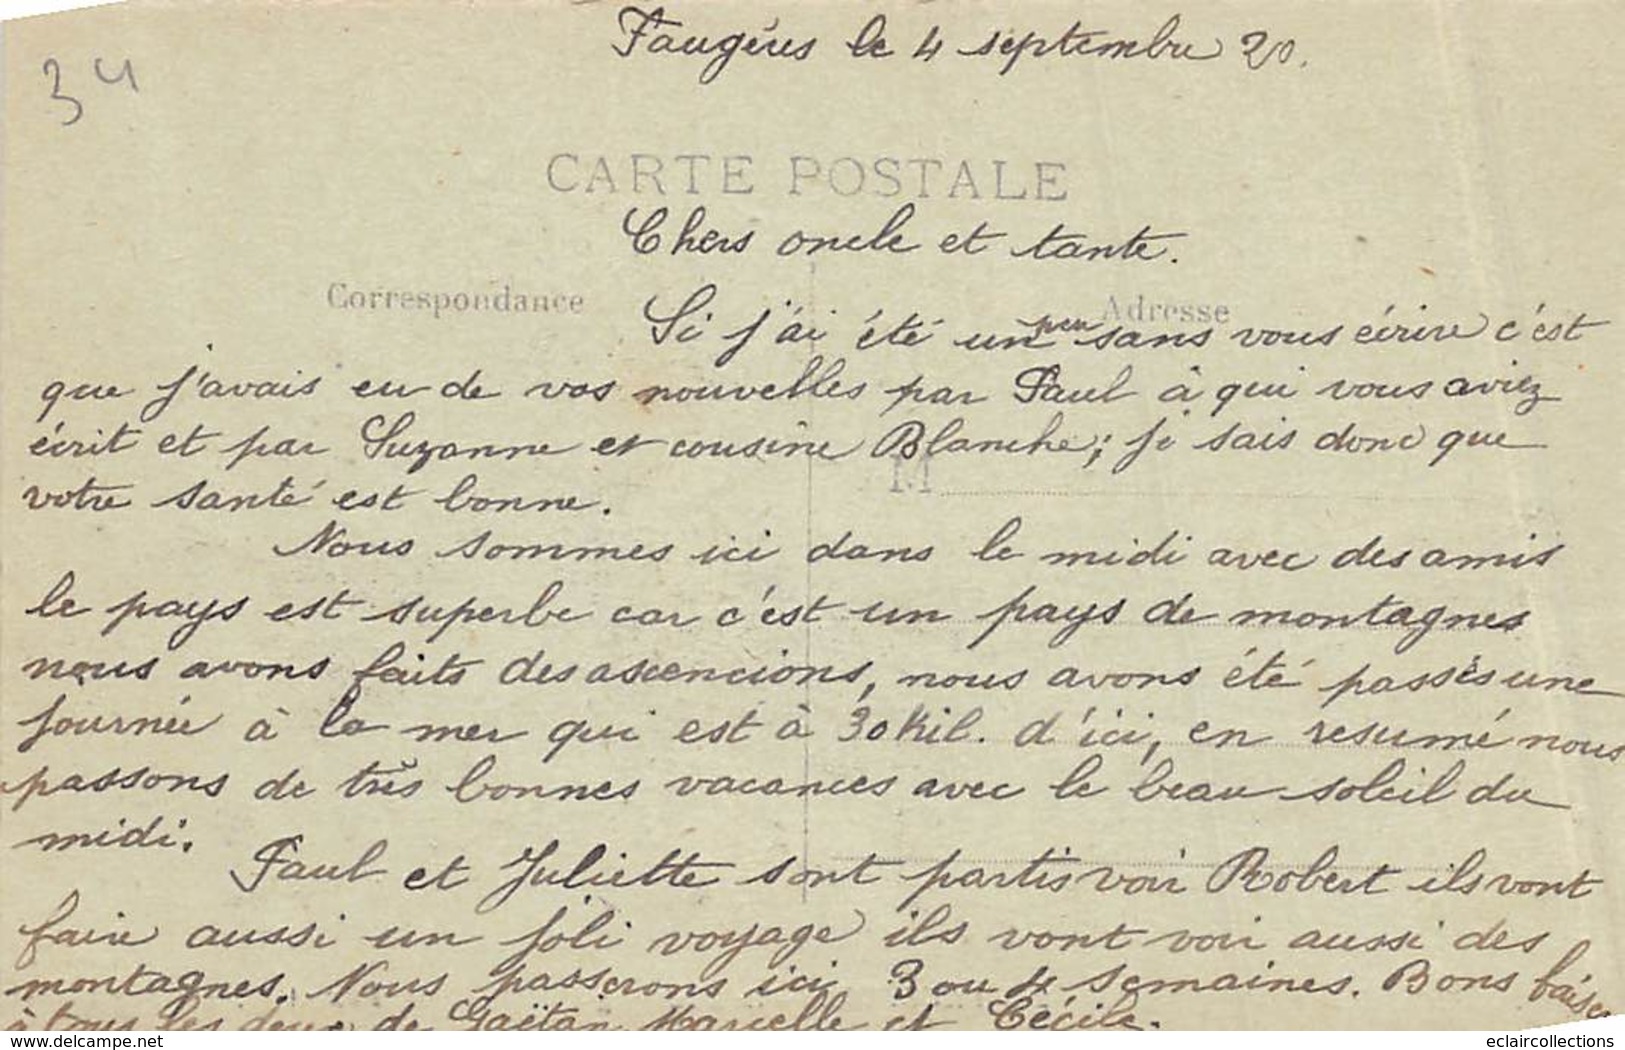 34
Faugères le 4 septembre 20.
CARTE POSTALE
Chers oncle et tante.
Correspondance
Adresse
Si j'ai été un peu sans vous écrire c'est
que j'avais eu de vos nouvelles par Paul à qui vous aviez
écrit et par Suzanne et cousine Blanche; je sais donc que
M
votre santé est bonne.
Nous sommes ici dans le midi avec des amis
le pays est superbe car c'est un pays de montagnes
nous avons faits des ascencions, nous avons été passés une
journée à la mer qui est à 30 Kil. d'ici, en resumé nous
passons de très bonnes vacances avec le beau soleil du
midi.
Paul et Juliette sont partis voir Robert ils vont
faire aussi un joli voyage ils vont voir aussi des
montagnes. Nous passerons ici 3 ou 4 semaines. Bons baisers
à tous les deux de Gaëtan Marcelle et Cécile.
delcampe.net
eclaircollections